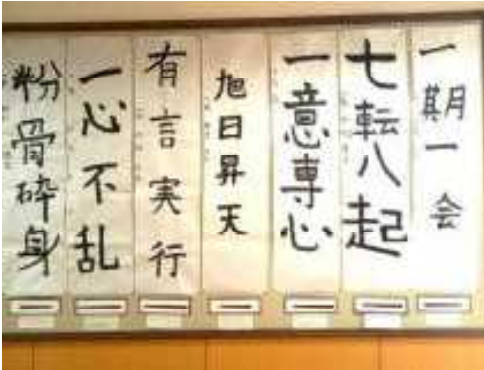 一期一会
七転八起
一意専心
旭日昇天
有言実行
一心不乱
粉骨砕身